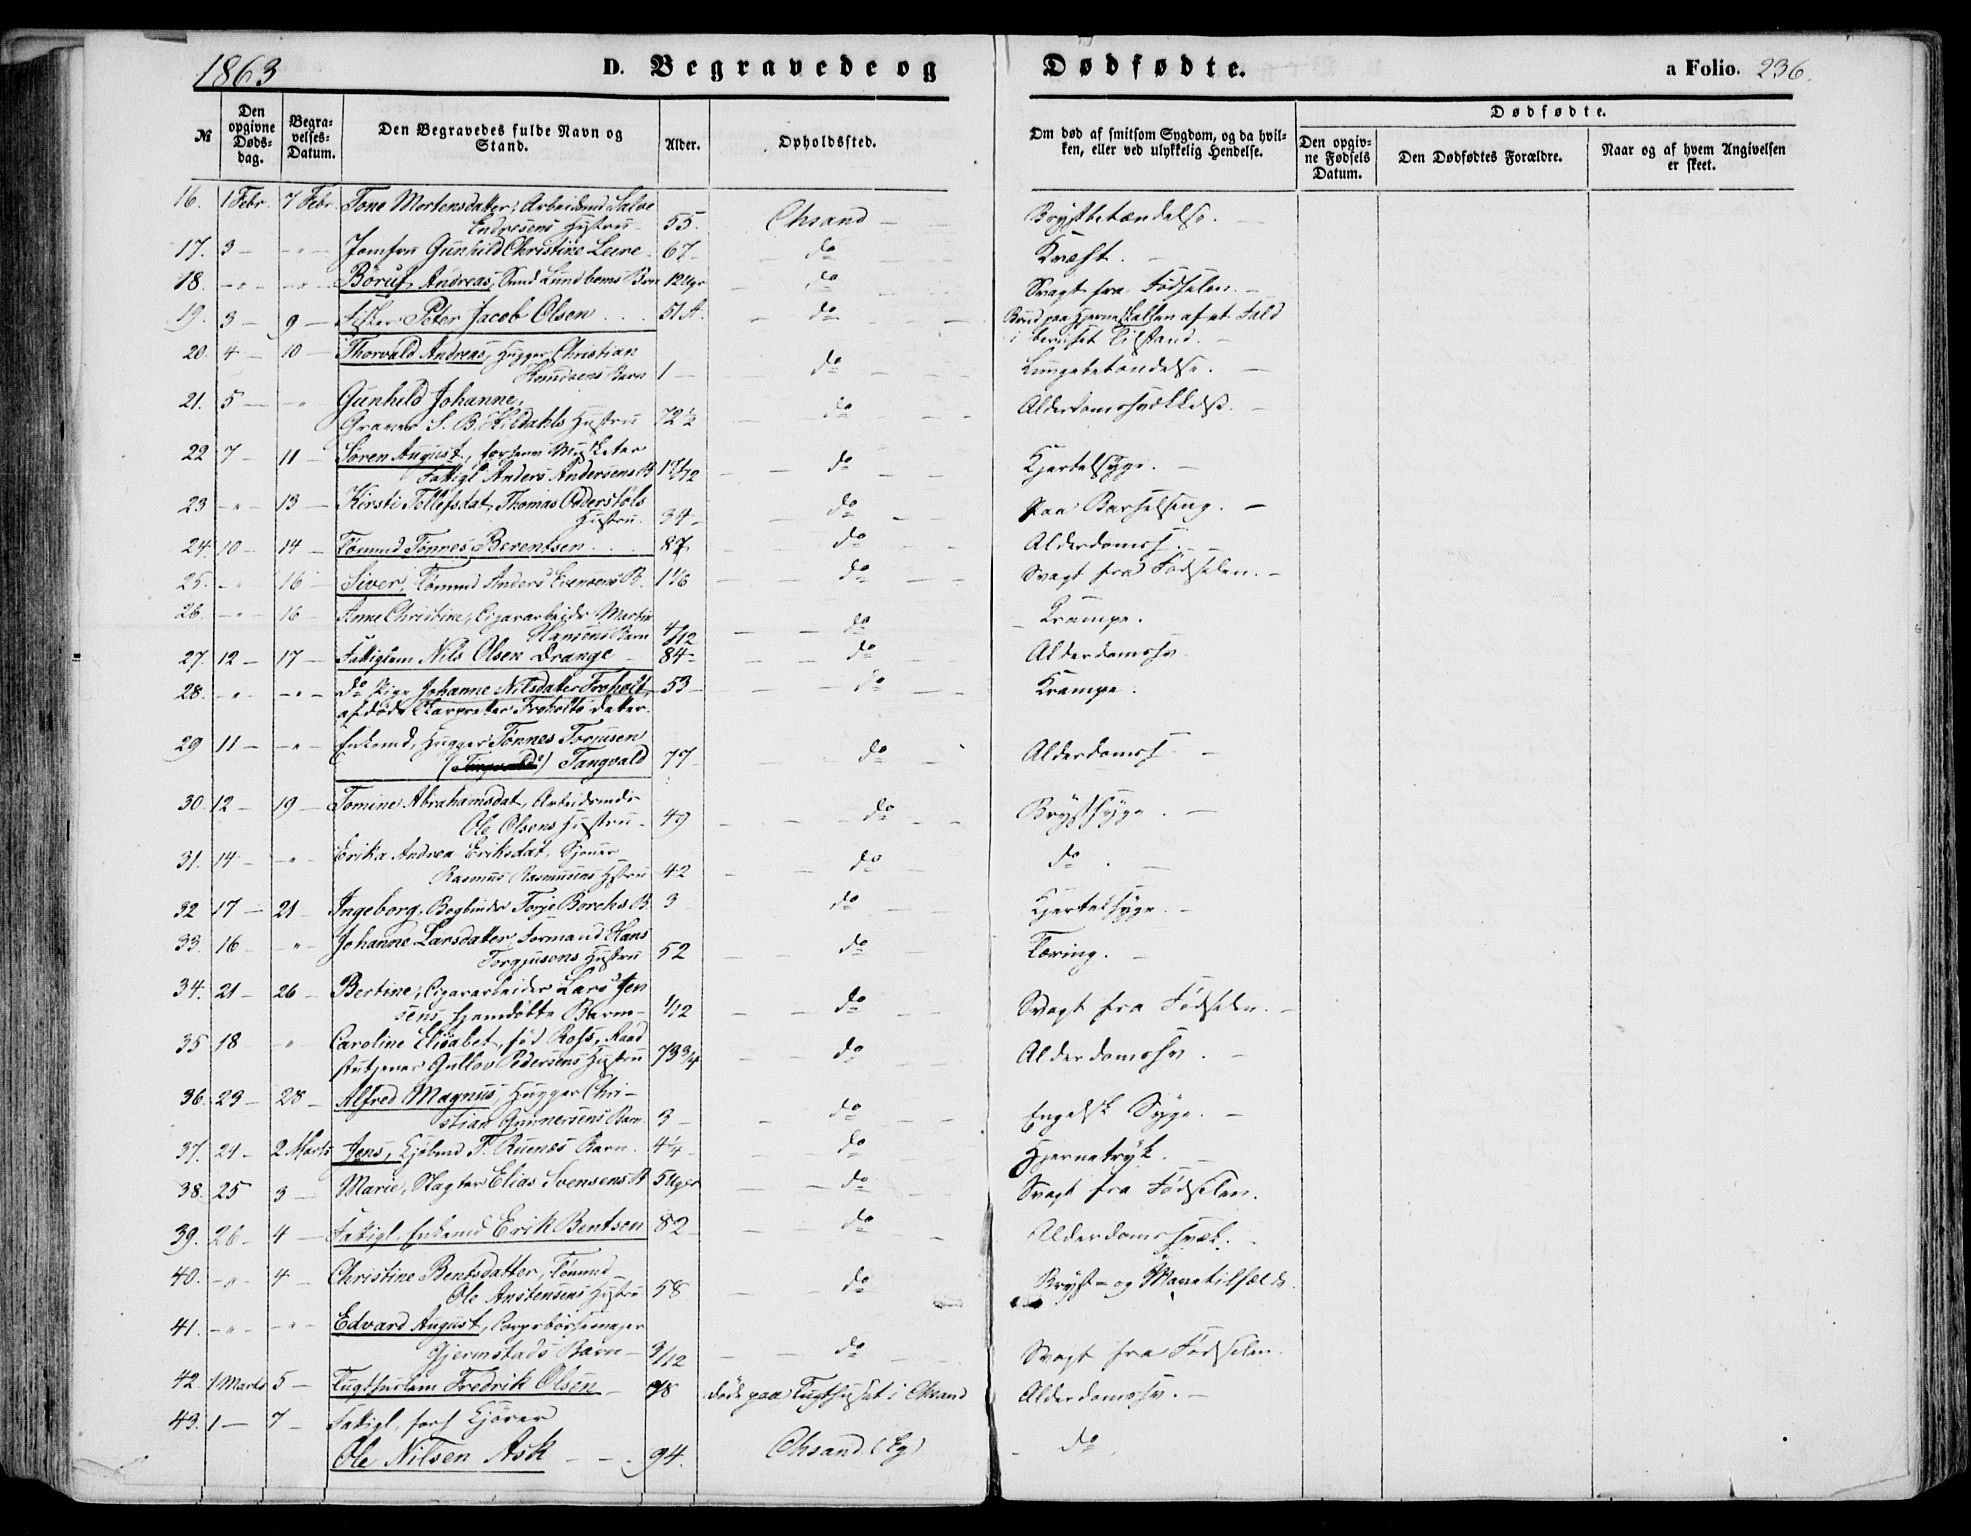 1863
D. Begravede og Dødfødte. a Folio. 236.
№
Den opgivne Døds-dag.
Begra-velses-Datum.
Den Begravedes fulde Navn og Stand.
Alder.
Opholdssted.
Om død af smitsom Sygdom, og da hvil-ken, eller ved ulykkelig Hendelse.
Dødfødte.
Den opgiv-ne Fødsels Datum.
Den Dødfødtes Forældre.
Naar og af hvem Angivelsen er skeet.
16. 1 Febr. 7 Febr. Tone Mortensdatter, Arbeidsmd Salve
Endresens Hustru 55. Chsand Brystbetændelse.
17. 3 — " — Jomfru Gunhild Christine Leire 67 do Kræft.
18. — " — — " — Andreas, Lundboms Barn 12 Uger do Svagt fra Fødselen.
19. 3 — 9 — Fisker Peter Jacob Olsen 51 A. do Brud paa Hjerneskallen af et Fald
i beruset Tilstand.
20. 4 — 10 — Thorvald Andreas, Hugger Christian
Knudsens Barn 1 — do Lungebetændelse.
21. 5 — " Gunhild Johanne,
Graver S. B. Hildahls Hustru 72½ do Alderdomssvækkelse.
22 7 — 11 — Søren August, forhenv Musketer
Fattigl Anders Andersens B do Kjertelsyge.
23 — " — 13 — Kirsti Tellefsdat, Thomas Odderstøls
Hustru. 34 — do Paa Barselseng.
24 10 — 14 — Tømmd Tønnes Berentsen 87 do Alderdomss.
25. — " 16 — Siver, Tømmd Anders Evensens B. 1 1/6 do Svagt fra Fødselen.
26 — " 16 — Anne Christine, Cigararbeider Martin
Hansens Barn 4/12 do Krampe.
27. 12 — 17 — Fattiglem Nils Olsen Drange 84 — do Alderdomssv.
28. — " — " — do Pige Johanne Nilsdatter Froholt, 53 — do Krampe.
afdøde Froholts datter.
29 11 — — " Enkemd, Hugger Tønnes Torjusen
Tangvald 77 do Alderdomss
30. 12 — 19 — Tomine Abrahamsdat, Arbeidsmd
Ole Olsens Hustru 49 do Brystsyge.
31. 14 — — " Erika Andrea Eriksdat. Sjouer
Rasmus Rasmusens Hustru 42 do do.
32 17 — 21 Ingeborg, Bogbinder Torje Borchs B. 3 do Kjertelsyge.
33. 16 — " Johanne Larsdatter, Formand Hans
Torgjusens Hustru 52 do Tæring.
34. 21 — 26 — Bertine, Cigararbeider Lars Jen
sens hjemdøbte Barn 1/12 do Svagt fra Fødselen.
35 18 " Caroline Elisabet, fød Ross, Raad
stutjener Gullov Pedersens Hustru 73 3/4 do Alderdomssv.
36. 23 — 28 — Alfred Magnus, Hugger Chri-
stian Gunnersens Barn 3 — do Engelsk Syge.
37. 24 — 2 Marts Jens, Kjøbmd T. Ruenes Barn. 4¼ do Hjernetryk.
38. 25 3 — Marie, Slagter Elias Svensens B 5 Uger do Svagt fra Fødselen.
39. 26 — 4 — Fattigl. Enkemd Erik Bentsen 82 — do Alderdomssvæk.
40. — " — 4 — Christine Bentsdatter, Tømmd
Ole Anstensens Hustru 58 do Bryst- og Mavetilfælde.
41. — " — — " — Edvard August, Corpsbøssemager
Gjermstads Barn 3/12 do Svagt fra Fødselen.
42. 1 Marts 5 — Tugthuslem Fredrik Olsen 78 døde paa Tugthuset i Chsand Alderdomssv.
43. 1 — 7 — Fattigl. forh Kjører
Ole Nilsen Ask 94. Chsand (Eg) do